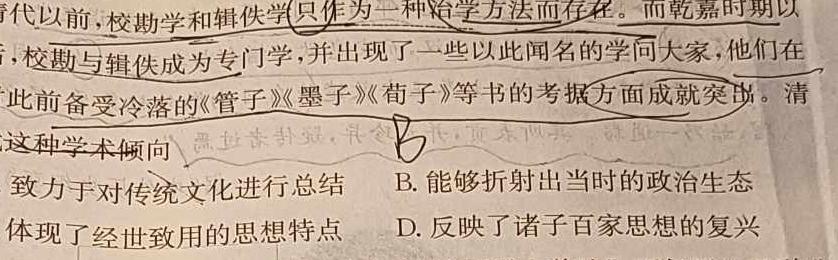 代以前,校勘学和辑佚学只作为一种治学方法而存在。而乾嘉时期以
,校勘与辑佚成为专门学,并出现了一些以此闻名的学问大家,他们在
此前备受冷落的《管子》《墨子》《荀子》等书的考据方面成就突出。清
这种学术倾向
B
致力于对传统文化进行总结 B. 能够折射出当时的政治生态
体现了经世致用的思想特点 D. 反映了诸子百家思想的复兴